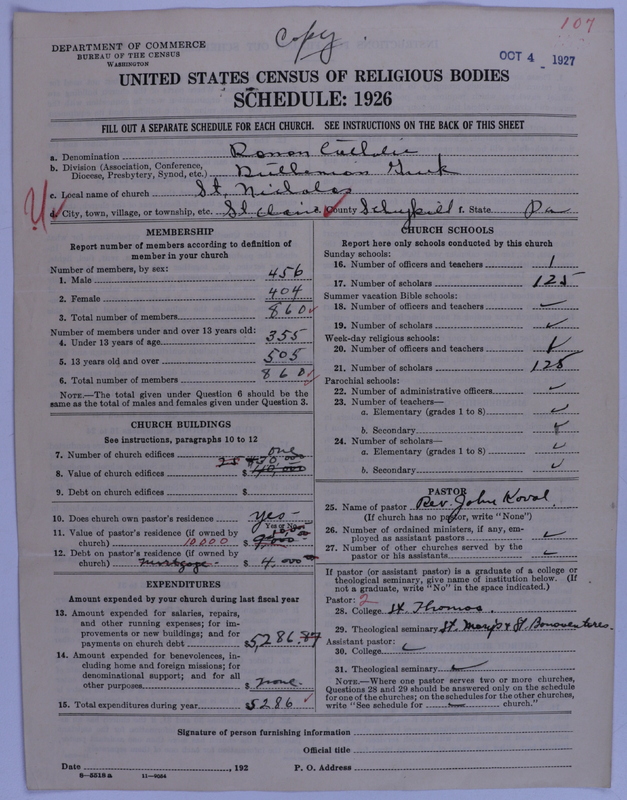 Copy
107
DEPARTMENT OF COMMERCE
BUREAU OF THE CENSUS
WASHINGTON
OCT 4 1927
UNITED STATES CENSUS OF RELIGIOUS BODIES
SCHEDULE: 1926
FILL OUT A SEPARATE SCHEDULE FOR EACH CHURCH. SEE INSTRUCTIONS ON THE BACK OF THIS SHEET
a. Denomination Roman Catholic
b. Division (Association, Conference, Diocese, Presbytery, Synod, etc.) Ruthenian Greek
c. Local name of church St. Nicholas
d. City, town, village, or township, etc. St Clair e. County Schuylkill f. State Pa
MEMBERSHIP
Report number of members according to definition of
member in your church
Number of members, by sex:
1. Male 456
2. Female 404
3. Total number of members 860
Number of members under and over 13 years old:
4. Under 13 years of age 355
5. 13 years old and over 505
6. Total number of members 860
NOTE.—The total given under Question 6 should be
same as the total of males and females given under Question 3.
CHURCH BUILDINGS
See instructions, paragraphs 10 to 12
7. Number of church edifices one
8. Value of church edifices $
9. Debt on church edifices $
10. Does church own pastor's residence yes
Yes or No
11. Value of pastor's residence (if owned by
church) 10,000 $
12. Debt on pastor's residence (if owned by
church) mortgage $ 4,000
EXPENDITURES
Amount expended by your church during last fiscal year
13. Amount expended for salaries, repairs,
and other running expenses; for im-
provements or new buildings; and for
payments on church debt $5,286.
14. Amount expended for benevolences, in-
cluding home and foreign missions; for
denominational support; and for all
other purposes $ none
15. Total expenditures during year $5286
CHURCH SCHOOLS
Report here only schools conducted by this church
Sunday schools:
16. Number of officers and teachers 1
17. Number of scholars 125
Summer vacation Bible schools:
18. Number of officers and teachers
19. Number of scholars
Week-day religious schools:
20. Number of officers and teachers 1
21. Number of scholars 125
Parochial schools:
22. Number of administrative officers
23. Number of teachers—
a. Elementary (grades 1 to 8)
b. Secondary
24. Number of scholars—
a. Elementary (grades 1 to 8)
b. Secondary
PASTOR
25. Name of pastor Rev. John Koval
(If church has no pastor, write "None")
26. Number of ordained ministers, if any, em-
ployed as assistant pastors
27. Number of other churches served by the
pastor or his assistants
If pastor (or assistant pastor) is a graduate of a college or
theological seminary, give name of institution below. (If
not a graduate, write "No" in the space indicated.)
Pastor: 2
28. College St. Thomas.
29. Theological seminary St. Mary's & St. Bonaventures.
Assistant pastor:
30. College
31. Theological seminary
NOTE.—Where one pastor serves two or more churches,
Questions 28 and 29 should be answered only on the schedule
for one of the churches; on the schedules for the other churches,
write "See schedule for church."
Signature of person furnishing information
Official title
Date , 192 P. O. Address
8—5518a 11—9054